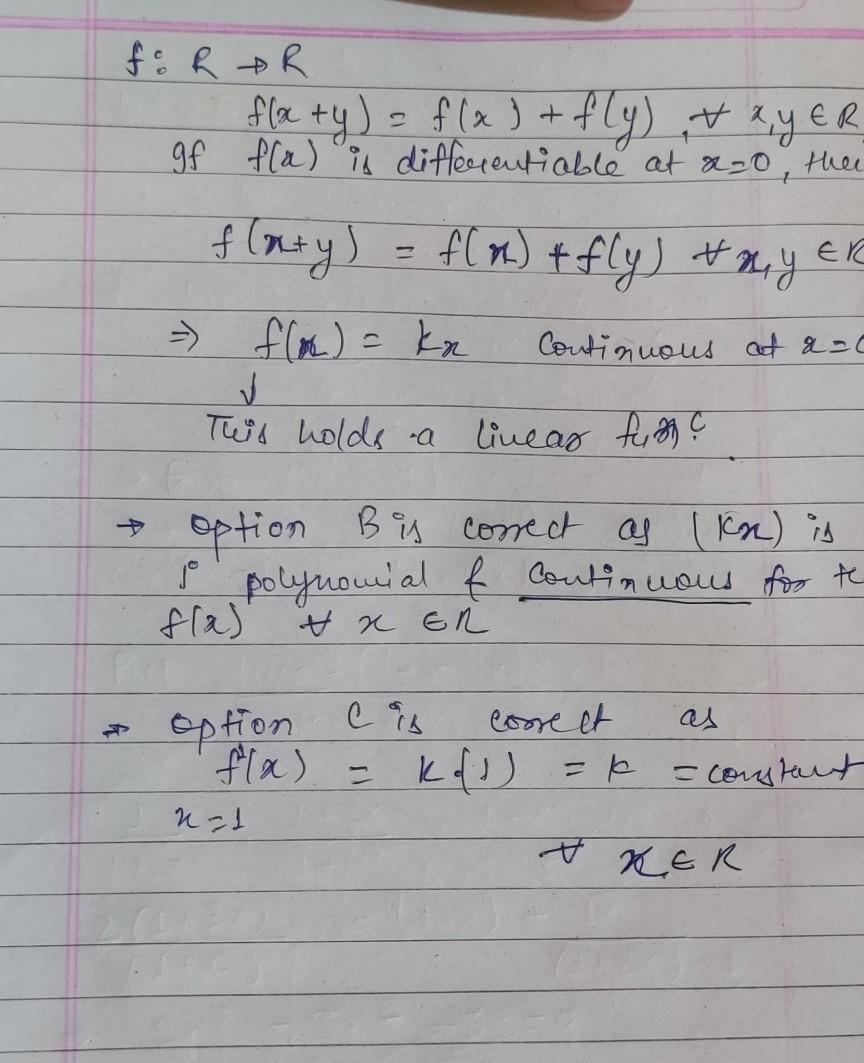 f: R → R
f(x+y) = f(x) + f(y), ∀ x,y ∈ R
gf f(x) is differentiable at x=0, then
f(x+y) = f(x) + f(y) ∀ x,y ∈ R
⇒ f(x) = kx Continuous at x=0
↓
This holds a linear
→ option B is correct as (kx) is
polynomial & Continuous for
f(x) ∀ x ∈ R
→ option C is correct as
f'(x) = k(1) = k = constant
x=1
∀ x ∈ R